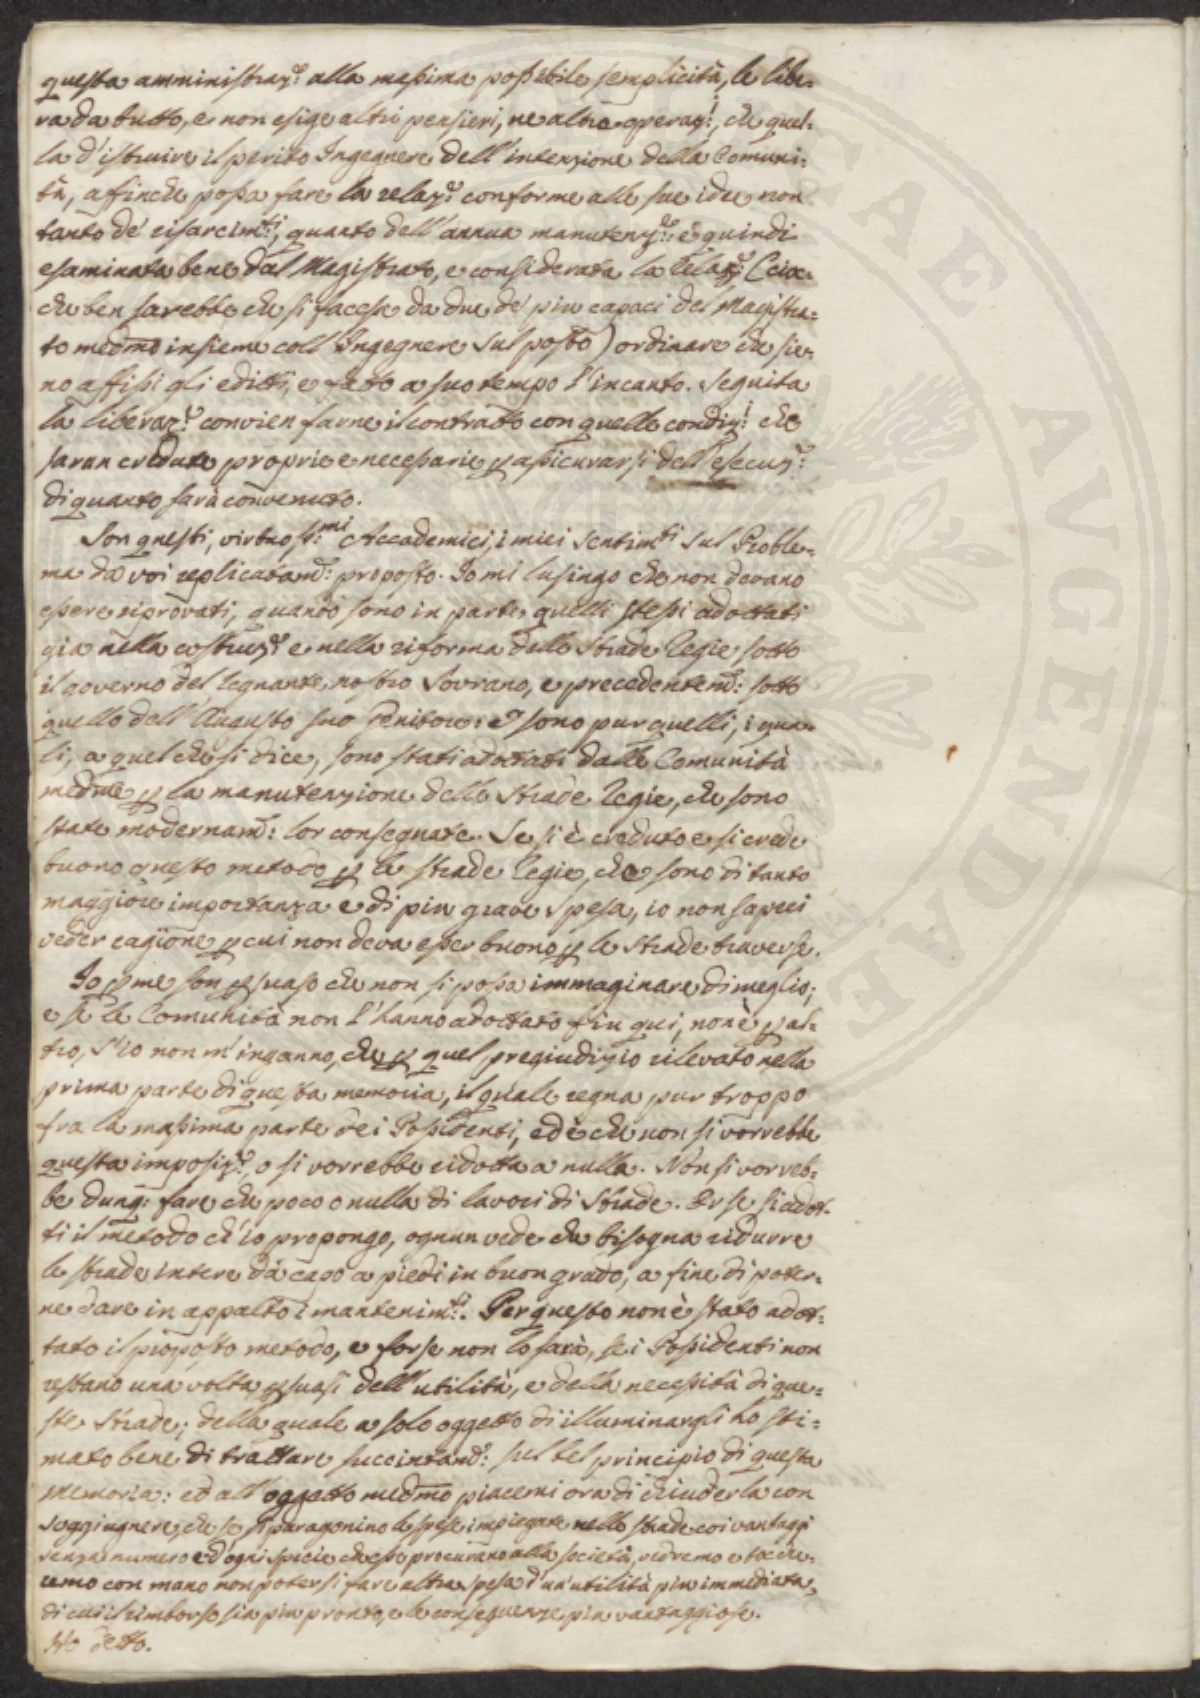 questa amministraz.e alla massima possibile semplicità, le libe-
ra da tutto, e non esige altri pensieri, ne altre operaz.i, che quel-
la d'istruire il perito Ingegnere dell'intenzione della Comuni-
tà, affinche possa fare la relaz.e conforme alle sue idee non
tanto de' risarcim.ti, quanto dell'annua manutenz.e: e quindi
esaminata bene dal Magistrato, e considerata la relaz.e (cioc-
che ben sarebbe che si facesse da due de' piu capaci del Magistra-
to medmo insieme coll'Ingegnere sul posto) ordinare che sie-
no affissi gli editti, e fatto a suo tempo l'incanto. Seguita
la liberaz.e convien farne il contratto con quelle condiz.i che
saran credute proprie e necessarie p assicurarsi dell'esecuz.e
di quanto sarà convenuto.
Son questi, virtuosis.mi Accademici, i miei sentim.ti sul Proble-
ma da voi replicatam.e: proposto. Io mi lusingo che non devano
essere riprovati, quando sono in parte quelli stessi adottati
gia nella costruz.e e nella riforma delle Strade Regie sotto
il governo del Regnante nostro Sovrano, e precedentem.e: sotto
quello dell'Augusto suo Genitore: e sono pur quelli, i qua-
li, a quel che si dice, sono stati adottati dalle Comunità
medme p la manutenzione delle Strade Regie, che sono
state modernam.e: lor consegnate. Se si è creduto e si crede
buono questo metodo p le strade Regie, che sono di tanto
maggiore importanza e di piu grave spesa, io non saprei
veder cagione p cui non deva esser buono p le Strade traverse.
Io p me son psuaso che non si possa immaginare di meglio;
e se le Comunità non l'hanno adottato fin qui, non è p al-
tro, s'io non m'inganno, che p quel pregiudizio rilevato nella
prima parte di questa memoria, il quale regna pur troppo
fra la massima parte dei Possidenti, ed è che non si vorrebbe
questa imposiz.e, o si vorrebbe ridotta a nulla. Non si vorreb-
be dunq: fare che poco o nulla di lavori di Strade. Or se si adot-
ti il metodo ch'io propongo, ognun vede che bisogna ridurre
le strade intere da capo a piedi in buon grado, a fine di poter-
ne dare in appalto i mantenim.ti. Per questo non è stato adot-
tato il proposto metodo, e forse non lo sarà, se i Possidenti non
restano una volta psuasi dell'utilità, e della necessità di que-
ste Strade; della quale a solo oggetto di illuminargli ho sti-
mato bene di trattare succintam.e: sul bel principio di questa
memoria: ed all'oggetto medmo piacemi ora di chiuderla con
soggiugnere, che se si paragonino le spese impiegate nelle strade coi vantaggi
senza numero e d'ogni specie che esse procurano alla società, vedremo e toche-
remo con mano non potersi fare altra spesa d'un'utilità piu immediata,
di cui il rimborso sia piu pronto, e le conseguenze piu vantaggiose.
Ho detto.